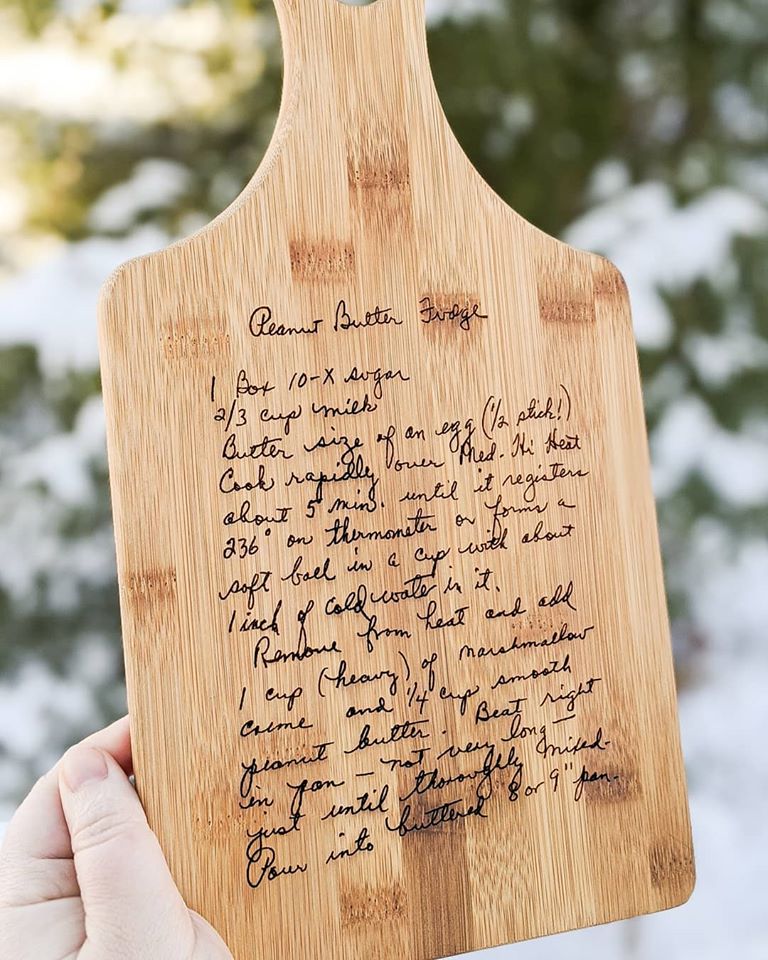 Peanut Butter Fudge
1 Box 10-X sugar
2/3 cup milk
Butter size of an egg (1/2 stick!)
Cook rapidly over Med. Hi Heat
about 5 min. until it registers
236° on thermometer or forms a
soft ball in a cup with about
1 inch of cold water in it.
Remove from heat and add
1 cup (heavy) of marshmallow
creme and 1/4 cup smooth
peanut butter. Beat right
in pan – not very long –
just until thoroughly mixed.
Pour into buttered 8 or 9" pan.